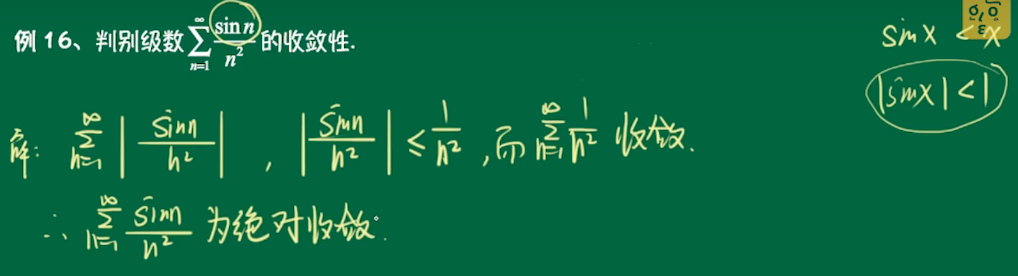 例 16、判别级数 $\sum_{n=1}^{\infty} \frac{\sin n}{n^2}$ 的收敛性.
sinx < x
|sinx| < 1
解: $\sum_{n=1}^{\infty} \left| \frac{\sin n}{n^2} \right|$ , $\left| \frac{\sin n}{n^2} \right| \leq \frac{1}{n^2}$ ,而 $\sum_{n=1}^{\infty} \frac{1}{n^2}$ 收敛.
∴ $\sum_{n=1}^{\infty} \frac{\sin n}{n^2}$ 为绝对收敛.